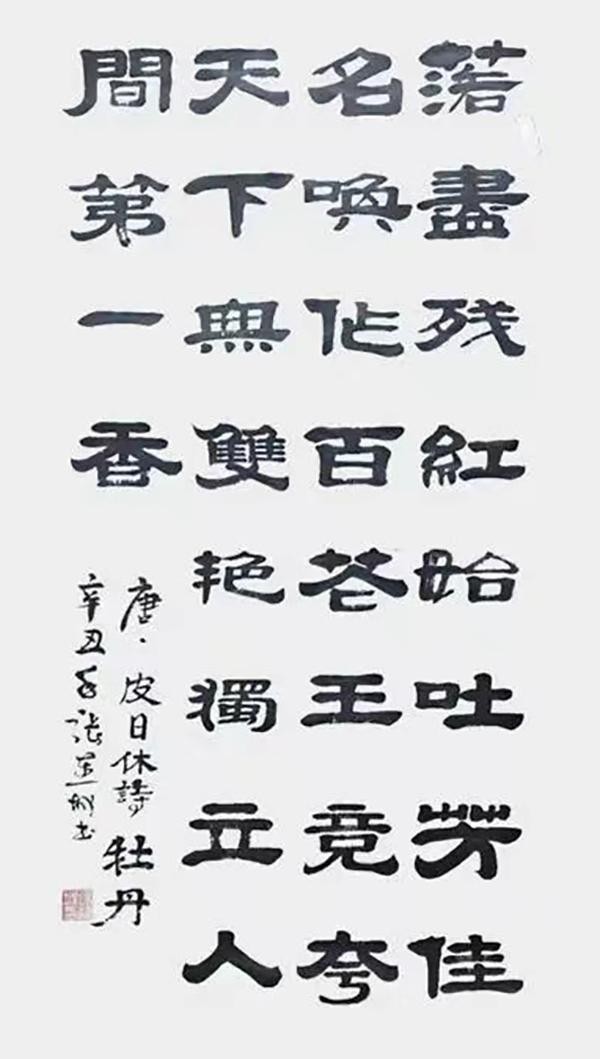 落盡残紅始吐芳佳
名喚作百花王竞夸
天下無雙艳獨立人
間第一香
唐·皮日休詩 牡丹
辛丑年張